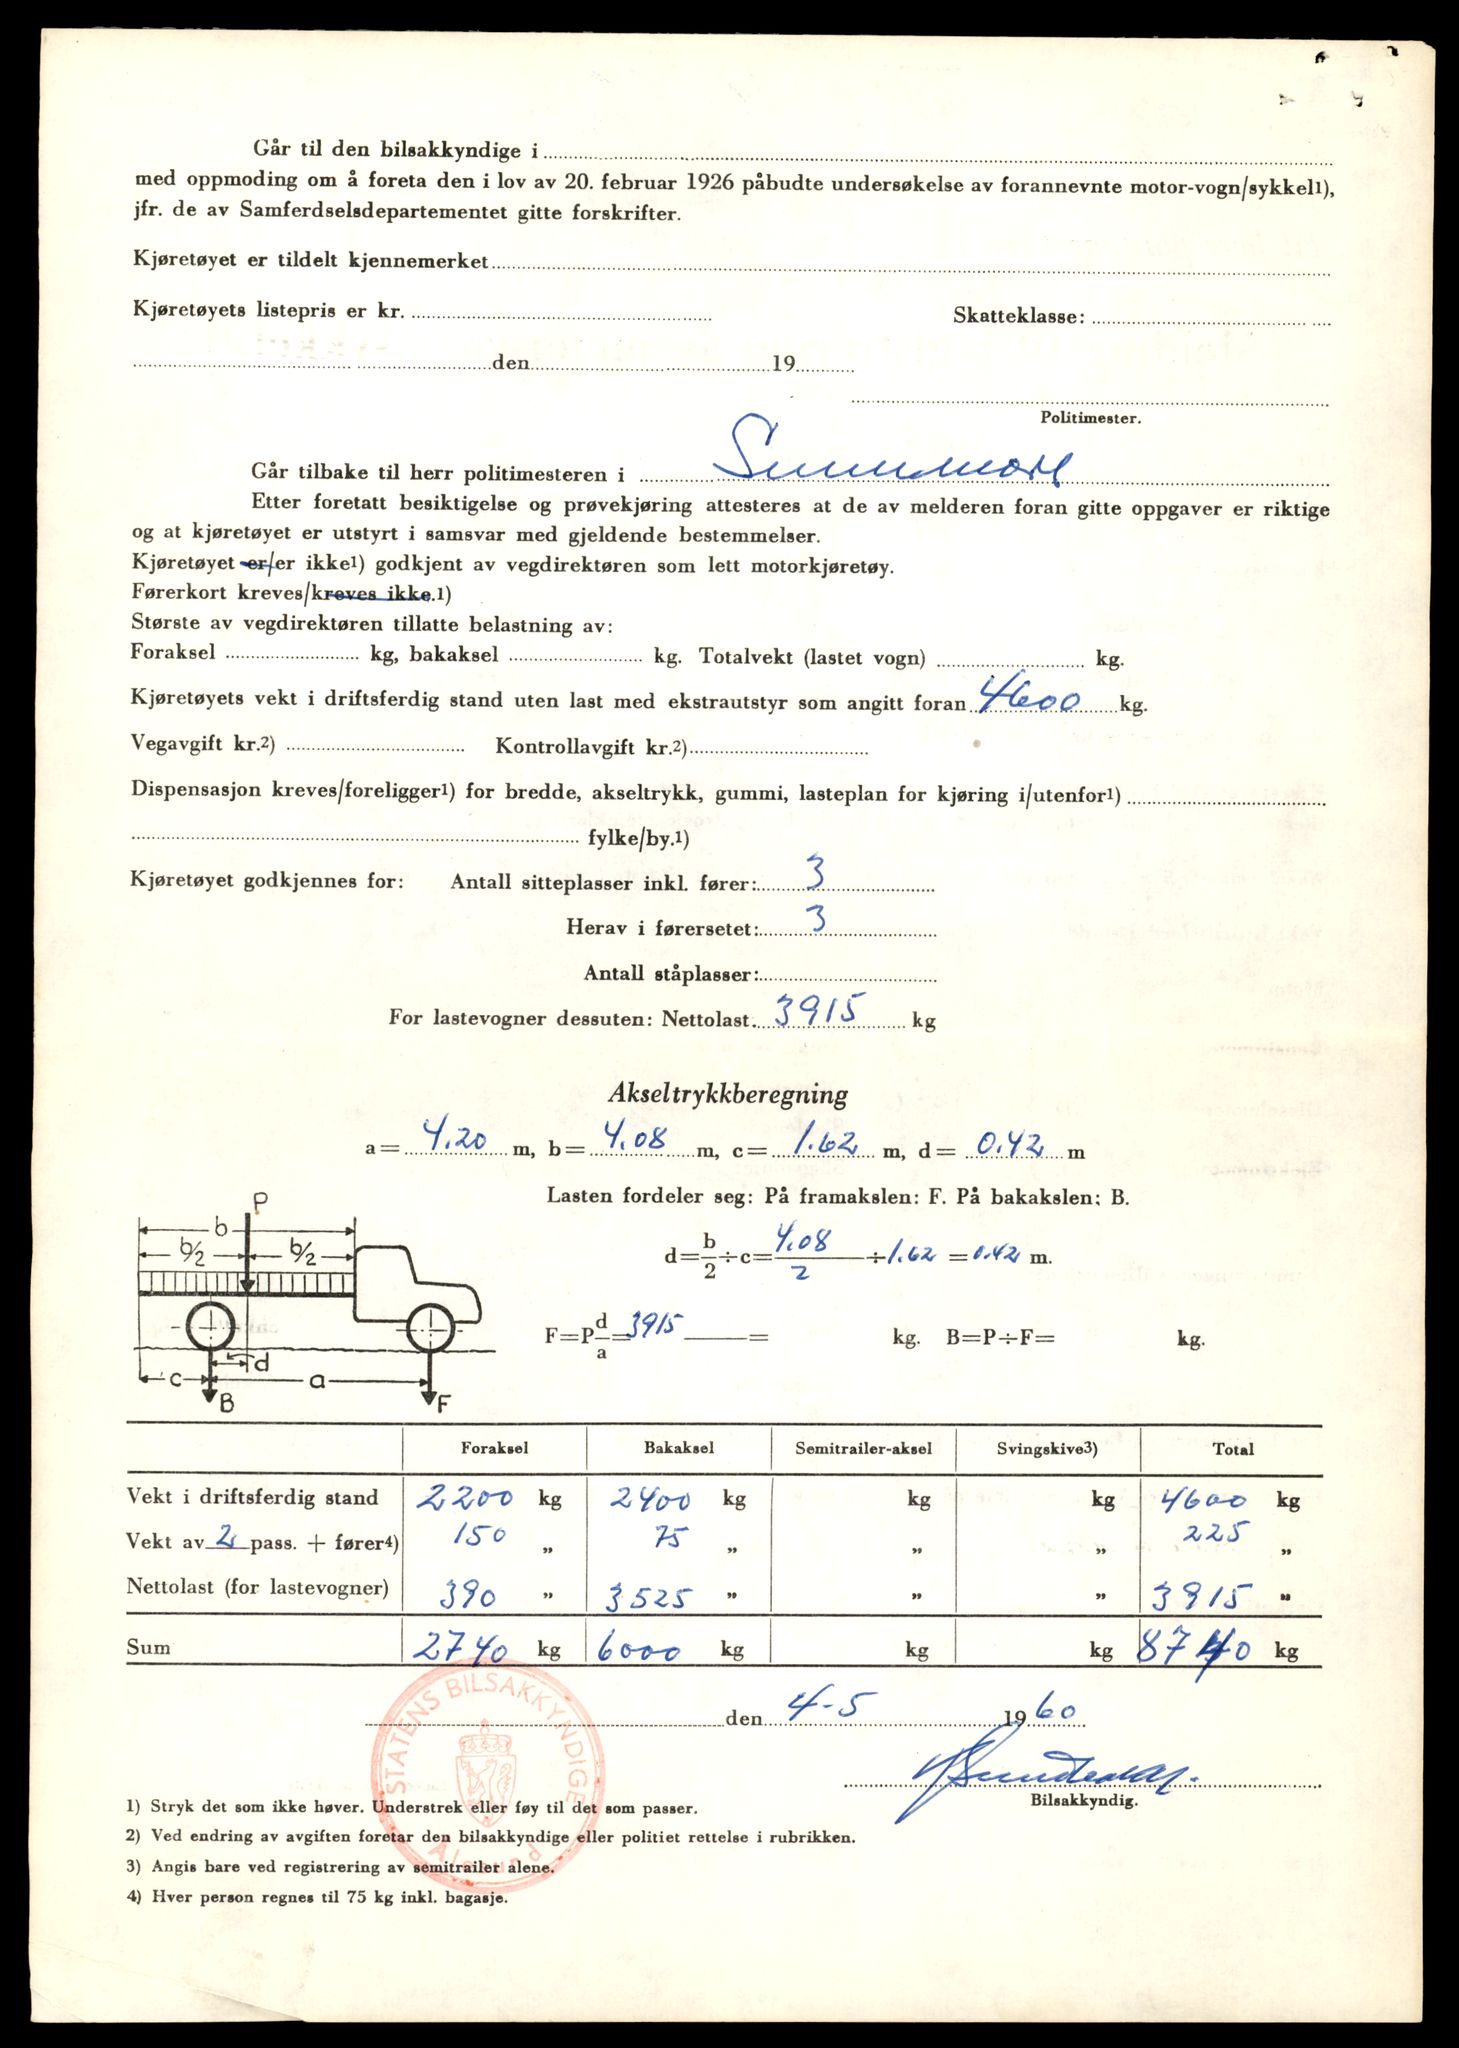 Går til den bilsakkyndige i
med oppmoding om å foreta den i lov av 20. februar 1926 påbudte undersøkelse av forannevnte motor-vogn/sykkel1),
jfr. de av Samferdselsdepartementet gitte forskrifter.
Kjøretøyet er tildelt kjennemerket
Kjøretøyets listepris er kr. Skatteklasse:
den 19
Politimester.
Går tilbake til herr politimesteren i Sunnmøre
Etter foretatt besiktigelse og prøvekjøring attesteres at de av melderen foran gitte oppgaver er riktige
og at kjøretøyet er utstyrt i samsvar med gjeldende bestemmelser.
Kjøretøyet er/er ikke1) godkjent av vegdirektøren som lett motorkjøretøy.
Førerkort kreves/kreves ikke.1)
Største av vegdirektøren tillatte belastning av:
Foraksel kg, bakaksel kg. Totalvekt (lastet vogn) kg.
Kjøretøyets vekt i driftsferdig stand uten last med ekstrautstyr som angitt foran 4600 kg.
Vegavgift kr.2) Kontrollavgift kr.2)
Dispensasjon kreves/foreligger1) for bredde, akseltrykk, gummi, lasteplan for kjøring i/utenfor1)
fylke/by.1)
Kjøretøyet godkjennes for: Antall sitteplasser inkl. fører: 3
Herav i førersetet: 3
Antall ståplasser:
For lastevogner dessuten: Nettolast 3915 kg
Akseltrykkberegning
a= 4.20 m, b= 4.08 m, c= 1.62 m, d= 0.42 m
Lasten fordeler seg: På framakslen: F. På bakakslen: B.
d=b/2÷c=4.08/2÷1.62=0.42 m.
F=P d/a=3915 = kg. B=P÷F= kg.
P
b
b/2 b/2
d
c a
B F
Foraksel Bakaksel Semitrailer-aksel Svingskive3) Total
Vekt i driftsferdig stand 2200 kg 2400 kg kg kg 4600 kg
Vekt av 2 pass. + fører4) 150 „ 75 „ „ „ 225 „
Nettolast (for lastevogner) 390 „ 3525 „ „ „ 3915 „
Sum 2740 kg 6000 kg kg kg 8740 kg
den 4-5 1960
STATENS BILSAKKYNDIGE
Ålesund
Bilsakkyndig.
1) Stryk det som ikke høver. Understrek eller føy til det som passer.
2) Ved endring av avgiften foretar den bilsakkyndige eller politiet rettelse i rubrikken.
3) Angis bare ved registrering av semitrailer alene.
4) Hver person regnes til 75 kg inkl. bagasje.